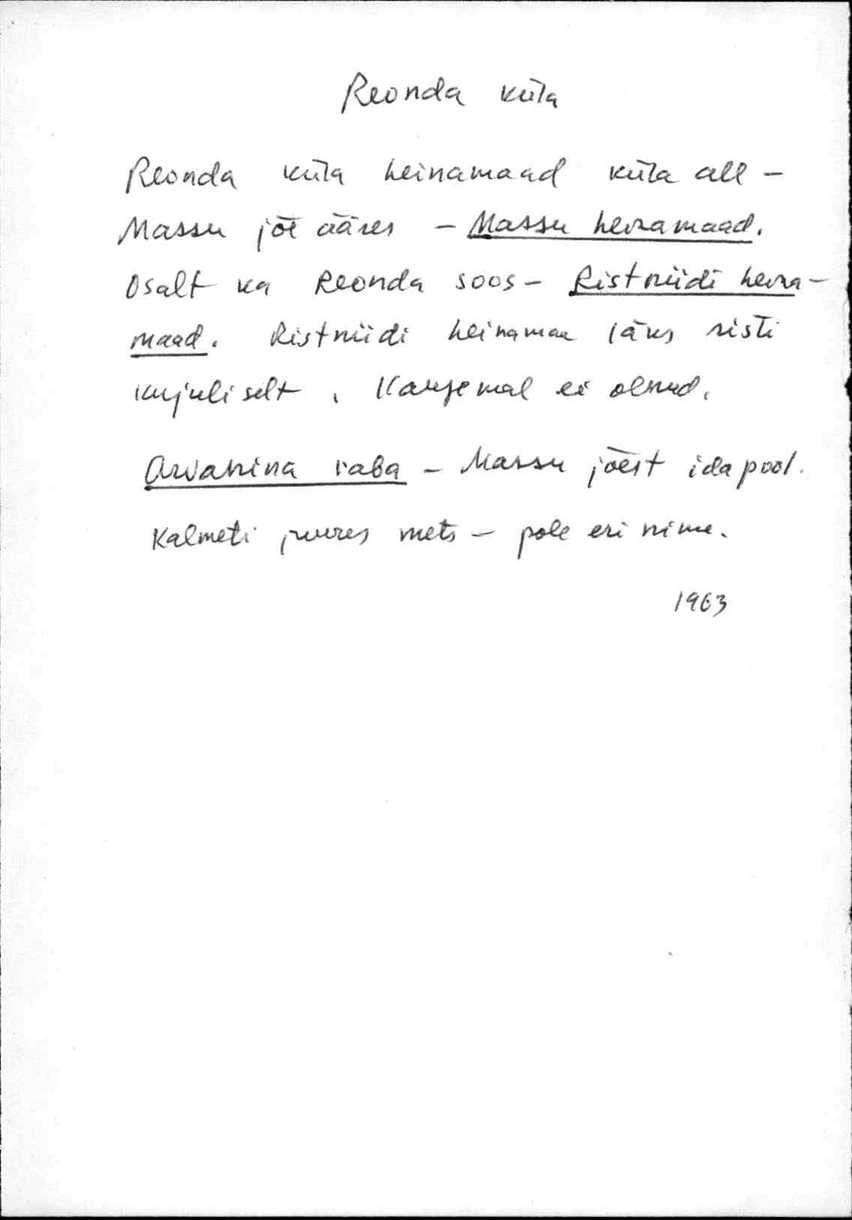 Reonda küla
Reonda küla heinamaad küla all –
Massu jõe ääres – Massu heinamaad.
Osalt ka Reonda soos – Ristniidi heina-
maad. Ristniidi heinamaa läks risti
kujuliselt, Kaugemal ei olnud.
raba – Massu jõest ida pool.
Kalmeti juures mets – pole eri nime.
1963